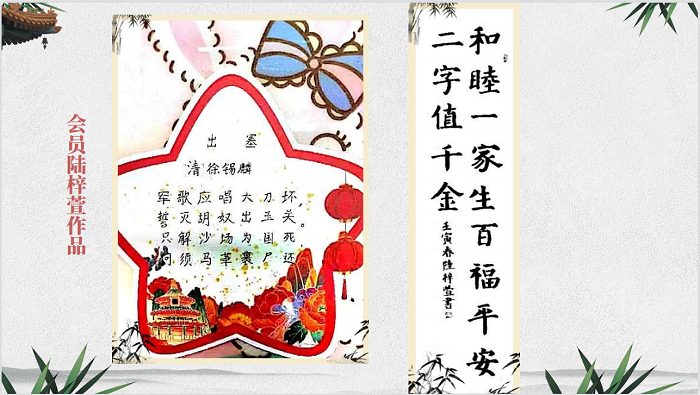 会员陆梓萱作品
出 塞
清 徐锡麟
军歌应唱大刀环,
誓灭胡奴出玉关。
只解沙场为国死,
何须马革裹尸还
和睦一家生百福平安
二字值千金
壬寅春陆梓萱书